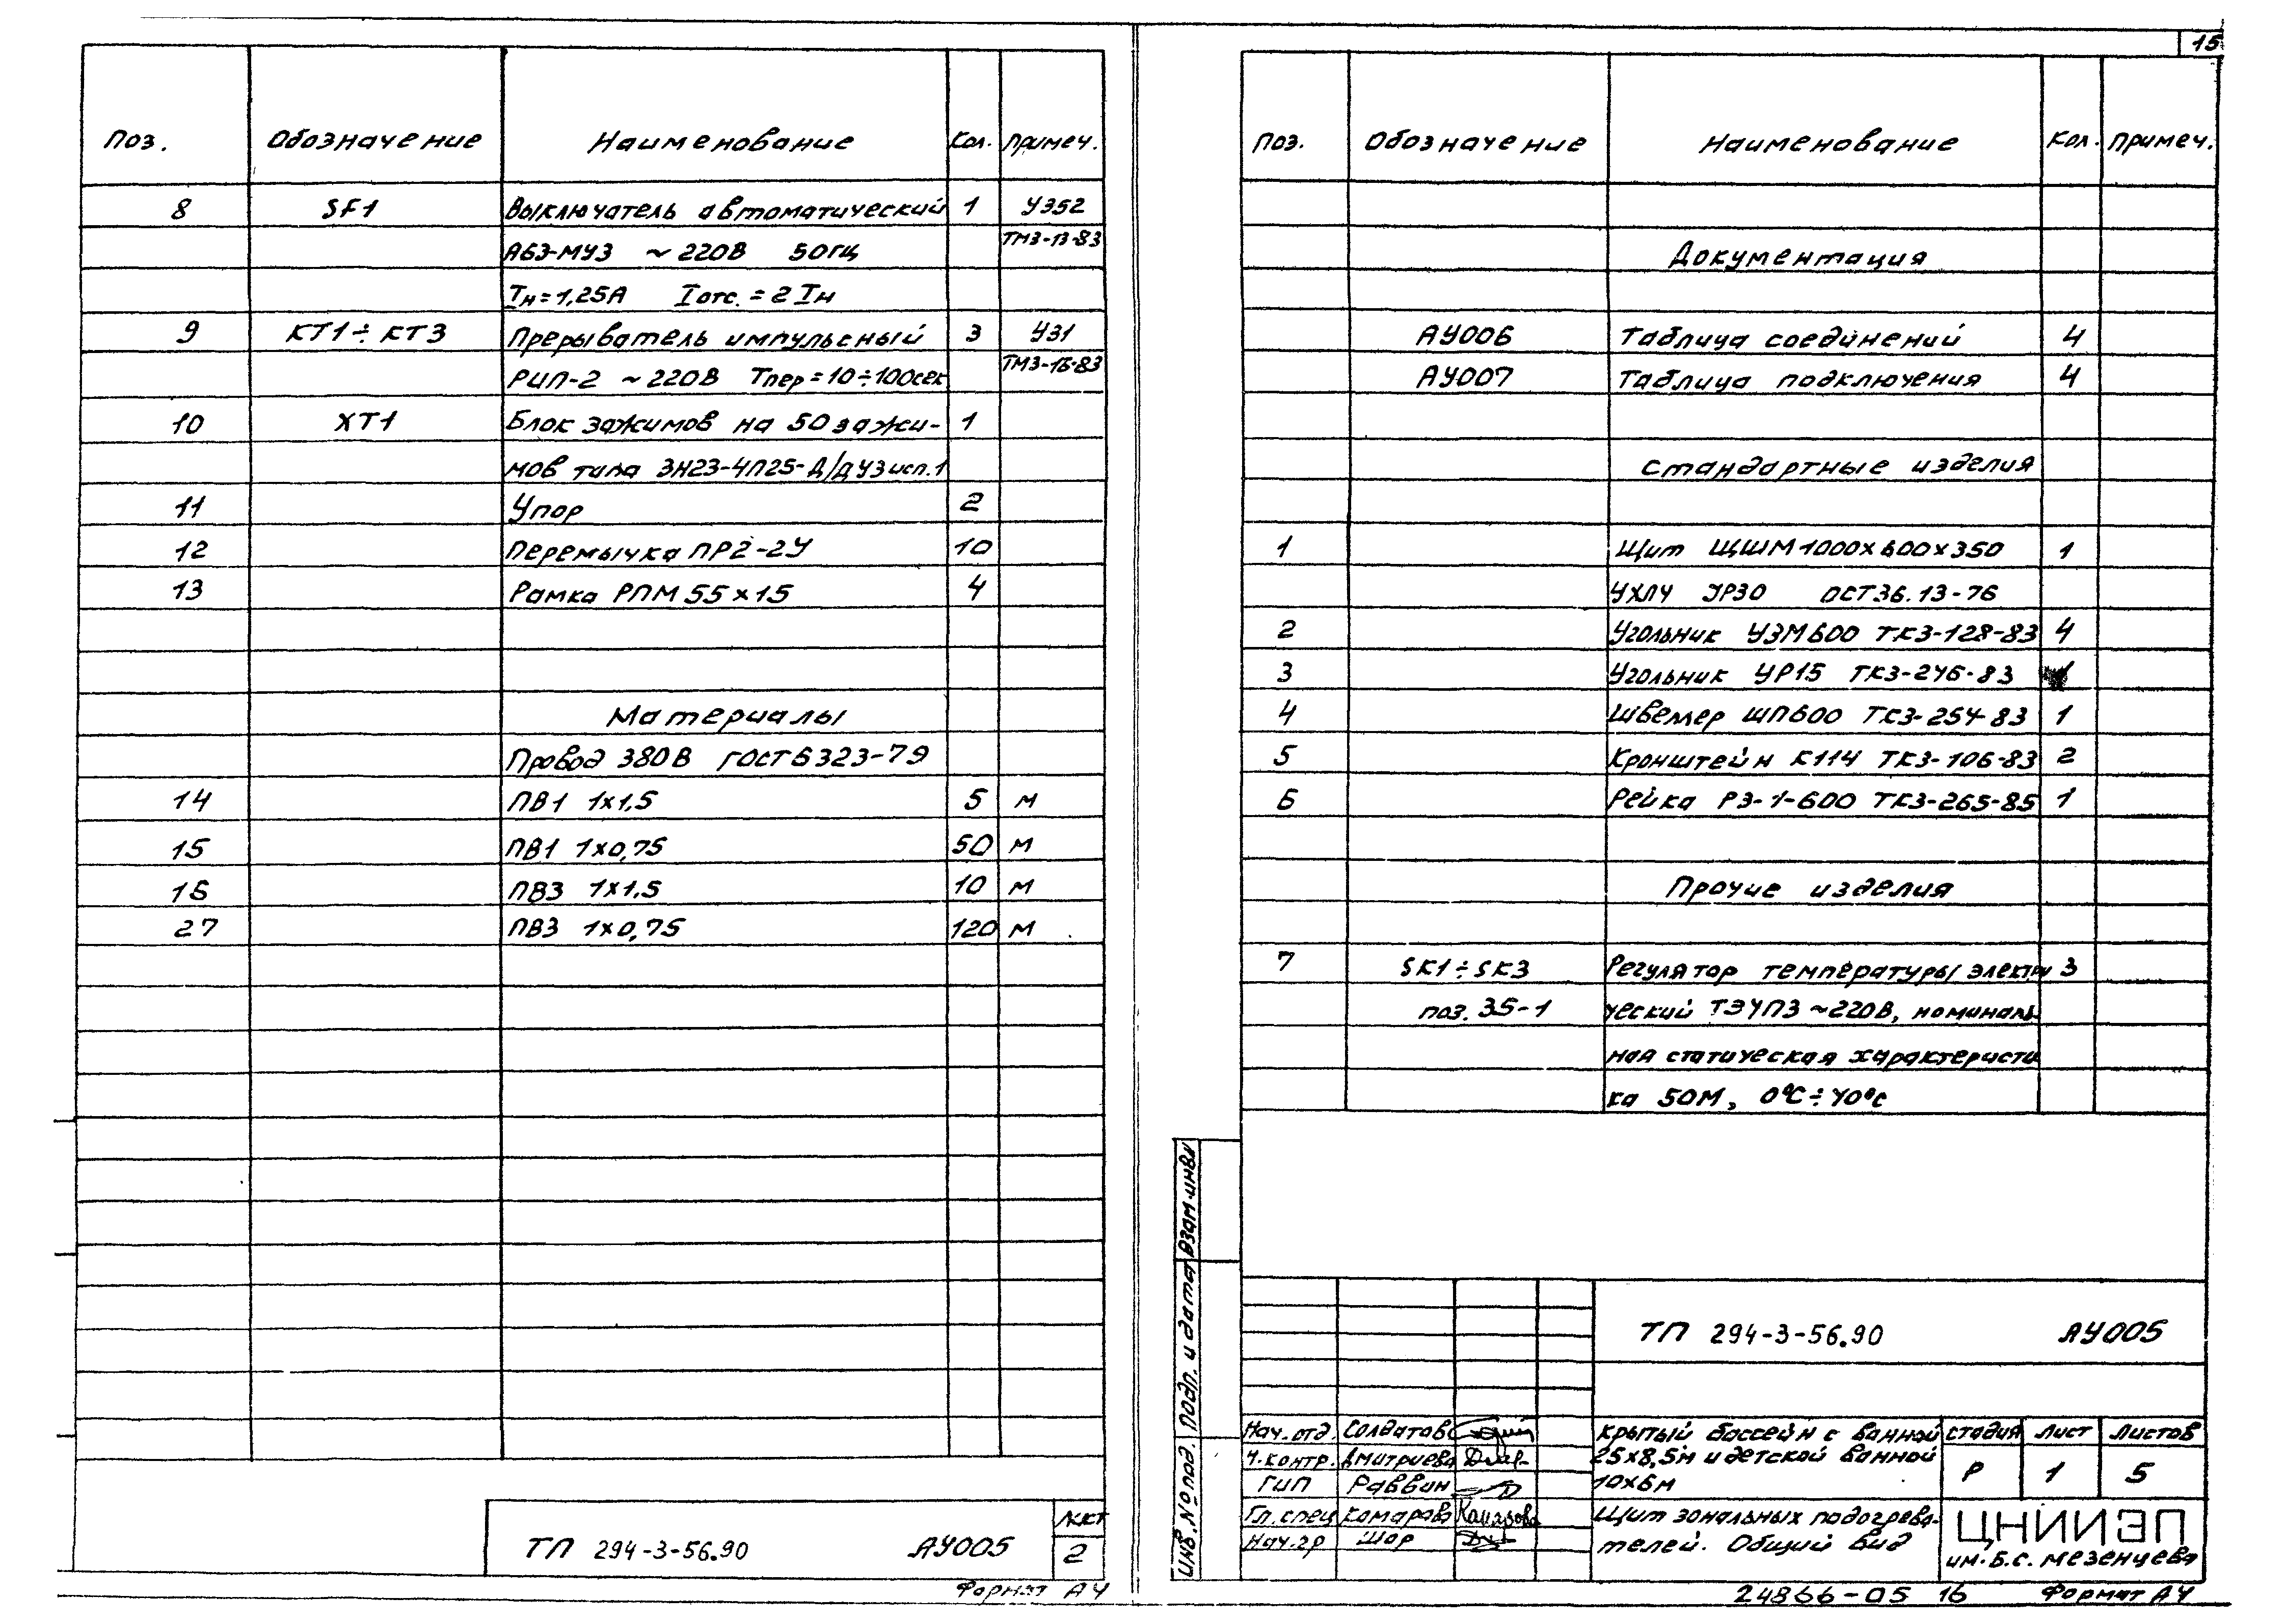 Поз. Обозначение Наименование Кол. Примеч.
8 SF1 Выключатель автоматический 1 У352
АБ3-МУ3 ~220В 50Гц ТМ3-13-83
Iн=1,25А Iотс.=2Iн
9 КТ1÷КТ3 Прерыватель импульсный 3 У31
РИП-2 ~220В Тпер=10÷100сек ТМ3-16-83
10 ХТ1 Блок зажимов на 50 зажи- 1
мов типа ЗН23-4П25-Д/ДУ3 исп.1
11 Упор 2
12 Перемычка ПР2-2У 10
13 Рамка РПМ 55х15 4
Материалы
Провод 380В ГОСТ 6323-79
14 ПВ1 1х1,5 5 м
15 ПВ1 1х0,75 50 м
16 ПВ3 1х1,5 10 м
27 ПВ3 1х0,75 120 м
ТП 294-3-56.90 АУ005
Лист
2
Формат А4
15
Поз. Обозначение Наименование Кол. Примеч.
Документация
АУ006 Таблица соединений 4
АУ007 Таблица подключения 4
Стандартные изделия
1 Щит ЩШМ 1000х600х350 1
УХЛ4 УР30 ОСТ36.13-76
2 Угольник УЗМ600 ТК3-128-83 4
3 Угольник УР15 ТК3-246-83 1
4 Швеллер ШП600 ТК3-254-83 1
5 Кронштейн К114 ТК3-106-83 2
6 Рейка РЗ-1-600 ТК3-265-85 1
Прочие изделия
7 SK1÷SK3 Регулятор температуры электри 3
поз. 35-1 ческий ТЭ4П3 ~220В, номиналь-
ная статическая характеристи
ка 50М, 0°С÷40°С
Взам.инв№
Подп. и дата
Инв.№ подл.
ТП 294-3-56.90 АУ005
Нач.отд. Солдатов
Н.контр. Дмитриева
ГИП Раввин
Гл.спец Комарова Комарова
Нач.гр Шор
Крытый бассейн с ванной
25х8,5м и детской ванной
10х6м
Стадия Лист Листов
Р 1 5
Щит зональных подогрева-
телей. Общий вид
ЦНИИЭП
им. Б.С. Мезенцева
24866-05 16 Формат А4